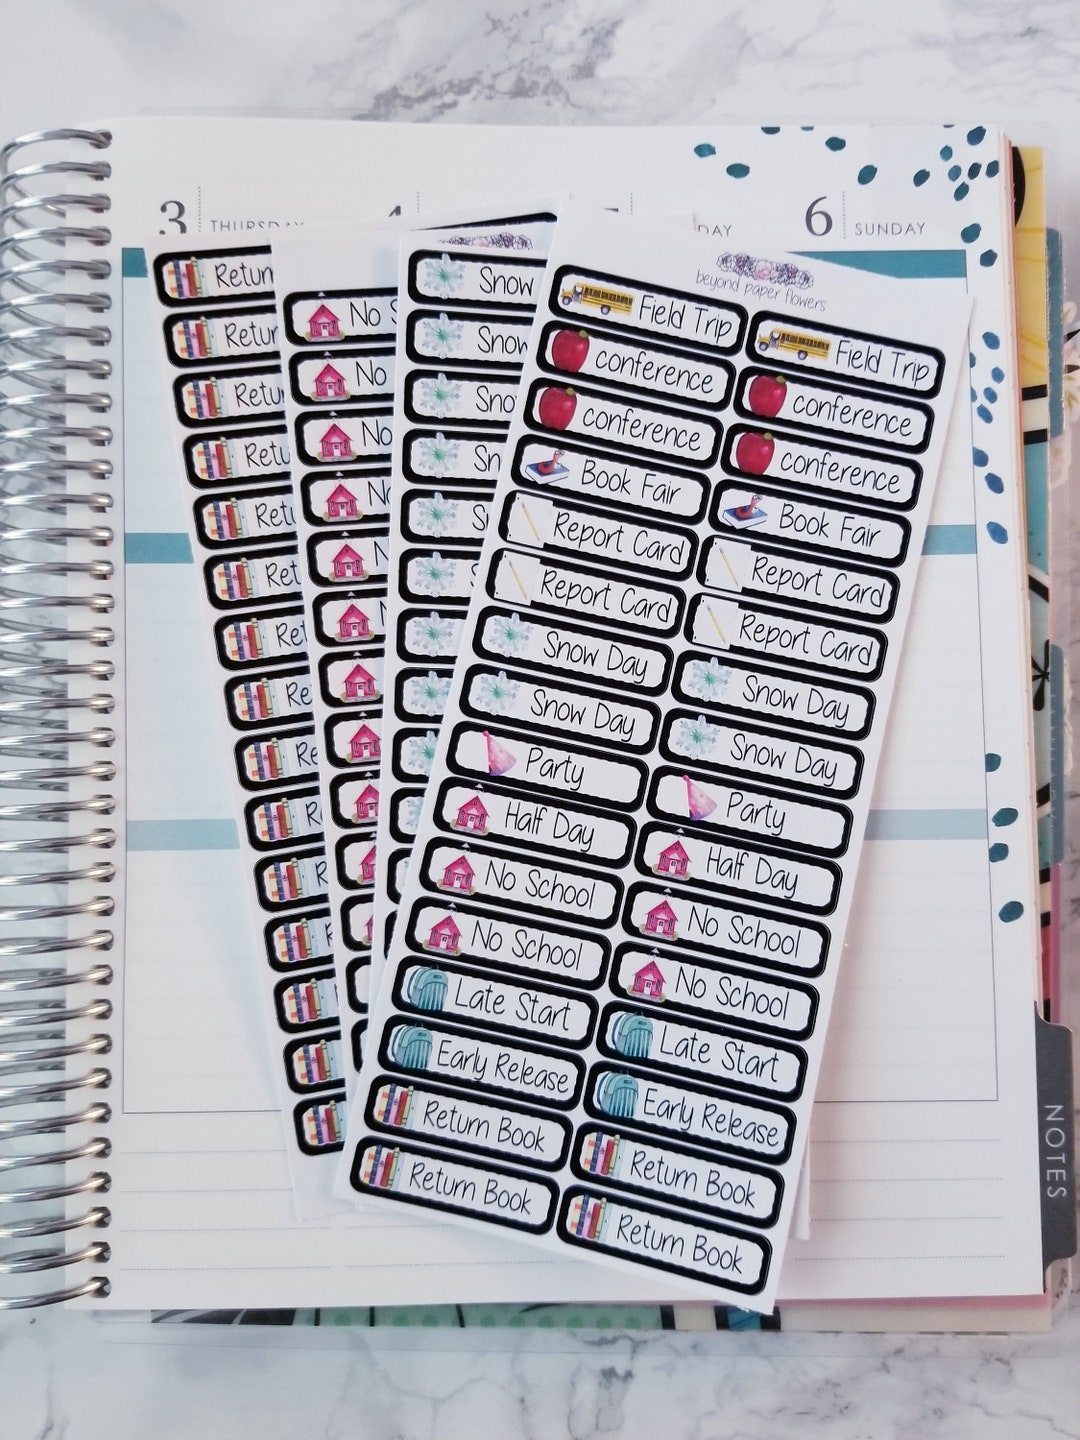 3 THURSDAY
4
DAY
6 SUNDAY
Return
Retur
Retu
Retu
Retu
Ret
Ret
Re
Re
R
R
No S
No
No
No
N
N
Snow
Snow
Sno
Sn
S
beyond paper flowers
Field Trip
Field Trip
conference
conference
conference
conference
Book Fair
Book Fair
Report Card
Report Card
Report Card
Report Card
Snow Day
Snow Day
Snow Day
Snow Day
Party
Party
Half Day
Half Day
No School
No School
No School
No School
Late Start
Late Start
Early Release
Early Release
Return Book
Return Book
Return Book
Return Book
NOTES